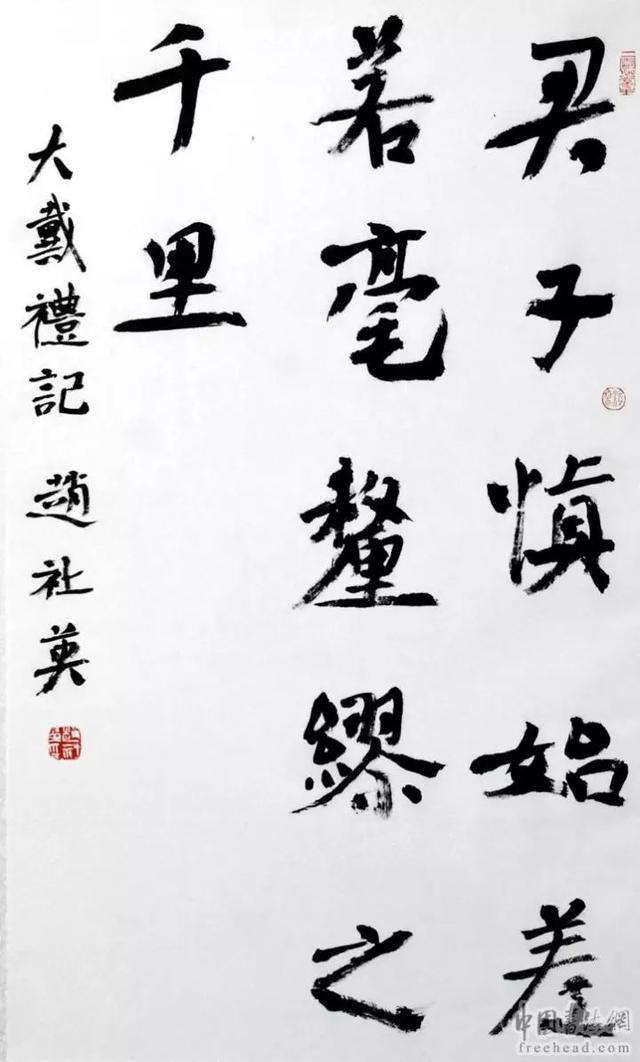 君子慎始差
若毫釐繆之
千里
大戴禮記 趙社英
中国书法網
freehead.com